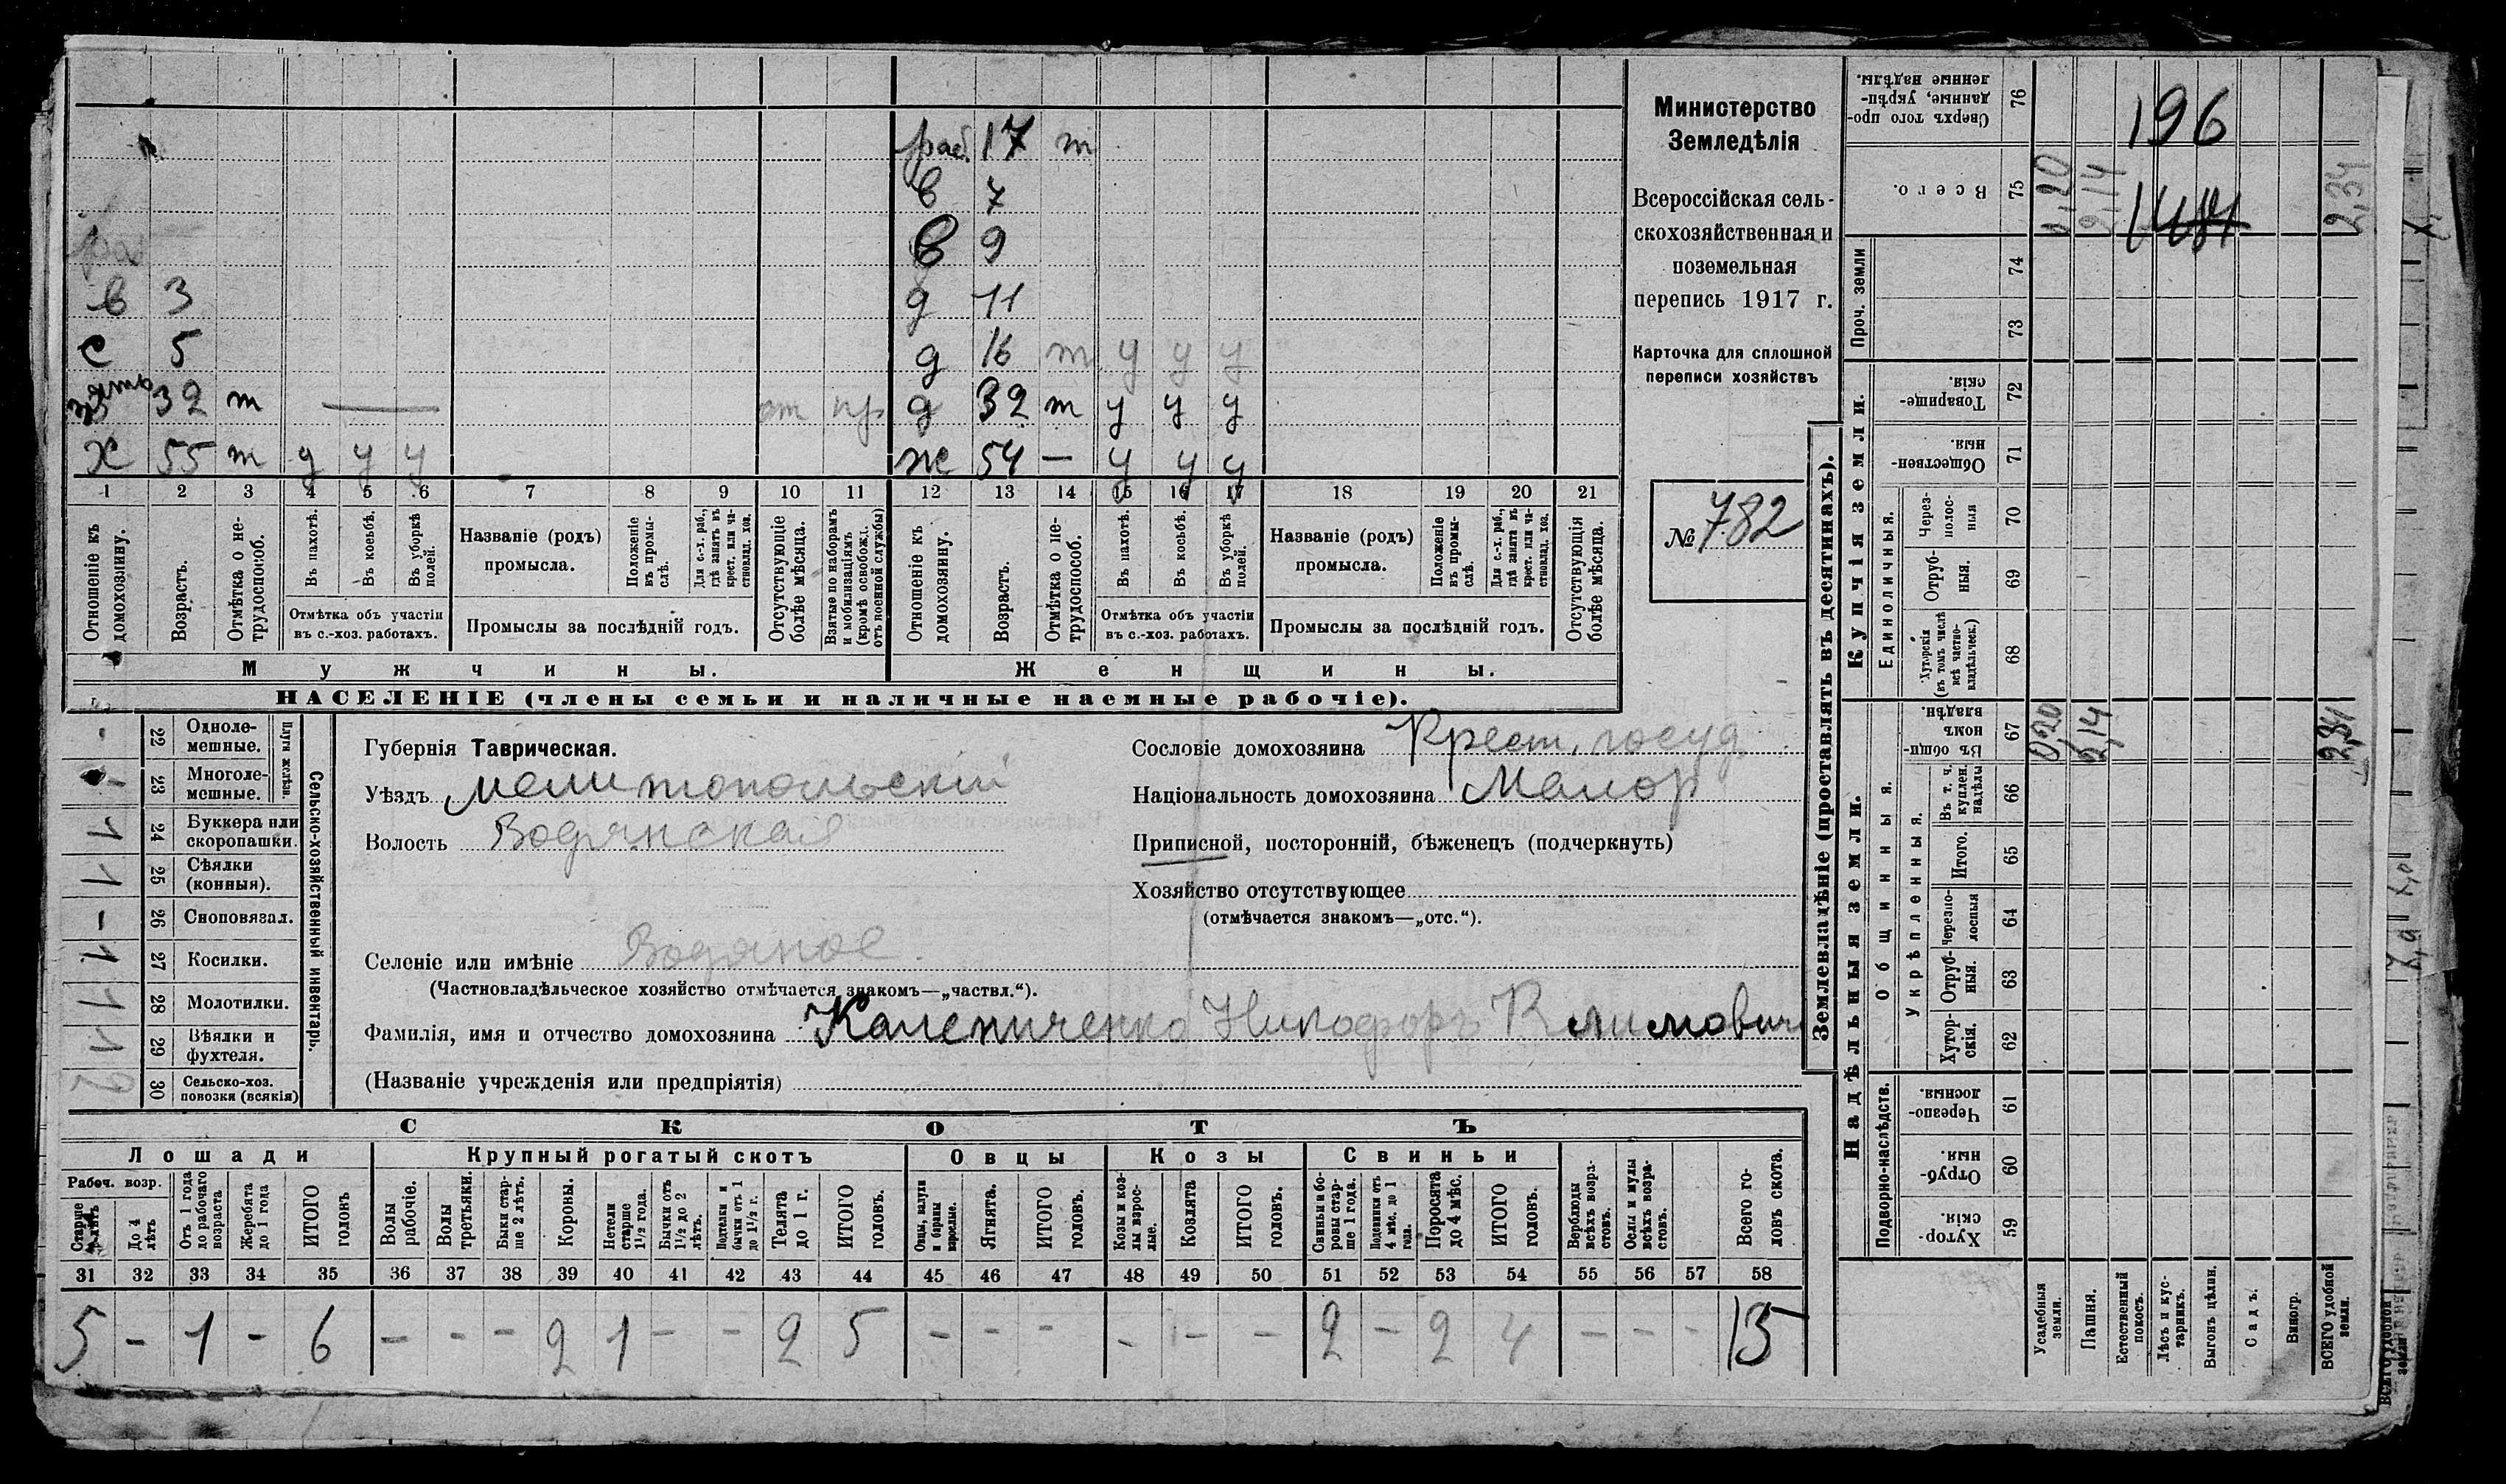 раб. 17 т
в 7
в 9
в 3 д 11
с 5 д 16 т у у у
зять 32 т — от пр. д 32 т у у у
х 55 т д у у ж 54 — у у у
1 2 3 4 5 6 7 8 9 10 11 12 13 14 15 16 17 18 19 20 21
Отношеніе къ домохозяину.
Возрастъ.
Отмѣтка о нетрудоспособ.
Въ пахотѣ.
Въ косьбѣ.
Въ уборкѣ полей.
Отмѣтка объ участіи въ с.-хоз. работахъ.
Названіе (родъ) промысла.
Положеніе въ промыслѣ.
Для с.-х. раб., гдѣ занятъ въ крест. или частновлад. хоз.
Промыслы за послѣдній годъ.
Отсутствующіе болѣе мѣсяца.
Взятые по наборамъ и мобилизаціямъ (кромѣ освобожд. отъ военной службы)
Отношеніе къ домохозяину.
Возрастъ.
Отмѣтка о нетрудоспособ.
Въ пахотѣ.
Въ косьбѣ.
Въ уборкѣ полей.
Отмѣтка объ участіи въ с.-хоз. работахъ.
Названіе (родъ) промысла.
Положеніе въ промыслѣ.
Для с.-х. раб., гдѣ занята въ крест. или частновлад. хоз.
Промыслы за послѣдній годъ.
Отсутствующія болѣе мѣсяца.
Мужчины.
Женщины.
НАСЕЛЕНІЕ (члены семьи и наличные наемные рабочіе).
Министерство
Земледѣлія
Всероссійская сель-
скохозяйственная и
поземельная
перепись 1917 г.
Карточка для сплошной
переписи хозяйствъ
№ 782
Губернія Таврическая.
Уѣздъ Мелитопольскій
Волость Водянская
Селеніе или имѣніе Водяное
(Частновладѣльческое хозяйство отмѣчается знакомъ—„частвл.“).
Фамилія, имя и отчество домохозяина Калениченко Никофоръ Климович
(Названіе учрежденія или предпріятія)
Сословіе домохозяина Крест. госуд.
Національность домохозяина Малор
Приписной, посторонній, бѣженецъ (подчеркнуть)
Хозяйство отсутствующее
(отмѣчается знакомъ—„отс.“).
Сельско-хозяйственный инвентарь.
Плуги желѣзн.
- 22 Однолемешные.
- 23 Многолемешные.
1 24 Буккера или скоропашки.
1 25 Сѣялки (конныя).
- 26 Сноповязал.
1 27 Косилки.
1 28 Молотилки.
1 29 Вѣялки и фухтеля.
2 30 Сельско-хоз. повозки (всякія)
СКОТЪ
Лошади
Крупный рогатый скотъ
Овцы
Козы
Свиньи
Рабоч. возр.
Старше 4 лѣтъ
До 4 лѣтъ
Отъ 1 года до рабочаго возраста
Жеребята до 1 года
ИТОГО головъ
Волы рабочіе.
Волы третьяки.
Быки старше 2 лѣтъ.
Коровы.
Нетели старше 1½ года.
Бычки отъ 1½ до 2 лѣтъ.
Подтелки и бычки отъ 1 до 1½ г.
Телята до 1 г.
ИТОГО головъ.
Овцы, валухи и бараны взрослые.
Ягнята.
ИТОГО головъ.
Козы и козлы взрослые.
Козлята
ИТОГО головъ.
Свиньи и боровы старше 1 года.
Подсвинки отъ 4 мѣс. до 1 года.
Поросята до 4 мѣс.
ИТОГО головъ.
Верблюды всѣхъ возрастовъ.
Ослы и мулы всѣхъ возрастовъ.
Всего головъ скота.
31 32 33 34 35 36 37 38 39 40 41 42 43 44 45 46 47 48 49 50 51 52 53 54 55 56 57 58
5 - 1 - 6 - - - 2 1 - - 2 5 - - - - - - 2 - 2 4 - - - 15
Землевладѣніе (проставлять въ десятинахъ).
Сверхъ того проданные, укрѣпленные надѣлы. 76
196
Всего. 75 0,20 2,14 2,34
Проч. земли
74
73
Купчія земли.
Товарищескія. 72
Общественныя. 71
Единоличныя.
Черезполосныя 70
Отрубныя. 69
Хуторскія (въ томъ числѣ всѣ частновладѣльческ.) 68
Надѣльныя земли.
Общинныя.
Въ общинномъ владѣн. 67 0,20 2,14 2,34
Укрѣпленныя.
Въ т. ч. куплен. надѣлы 66
Итого. 65
Черезполосныя 64
Отрубныя. 63
Хуторскія. 62
Подворно-наслѣдств.
Черезполосныя. 61
Отрубныя. 60
Хуторскія. 59
Усадебныя земли.
Пашня.
Естественный покосъ.
Лѣсъ и кустарникъ.
Выгонъ цѣлин.
Садъ.
Виногр.
ВСЕГО удобной земли.